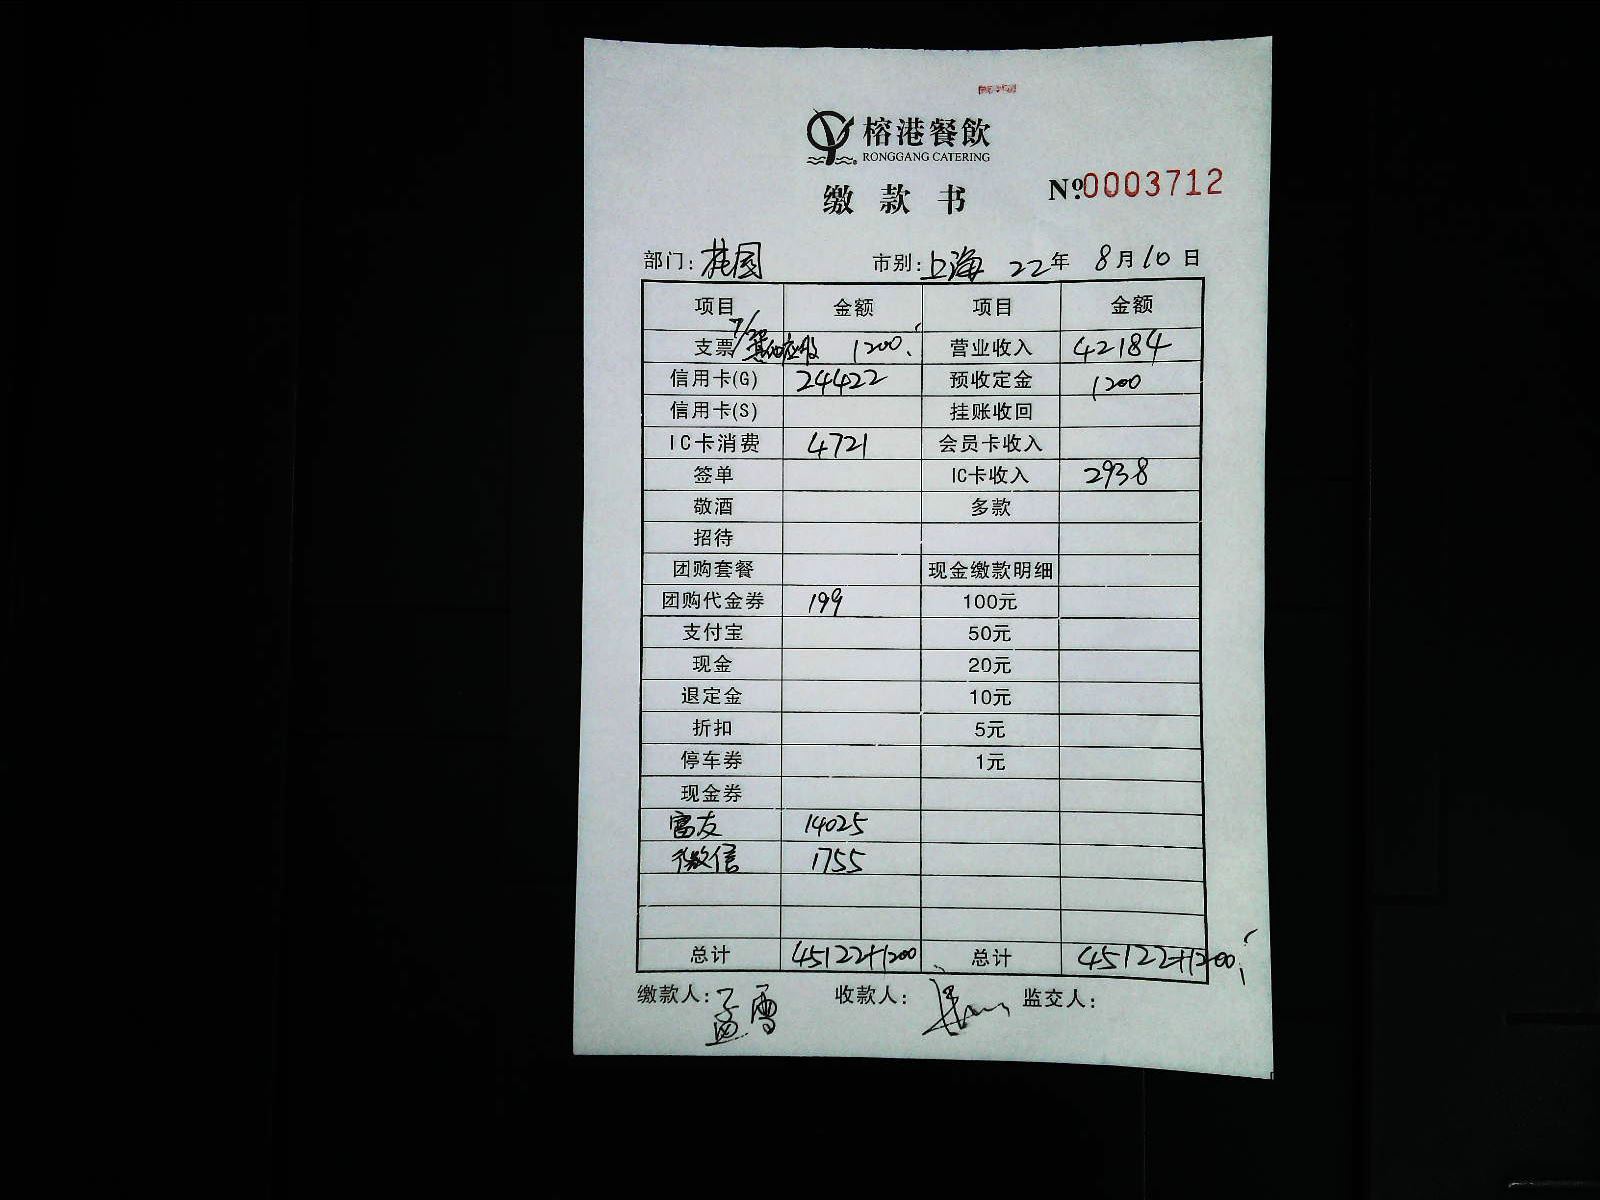 榕港餐飲
RONGGANG CATERING
缴款书 Nº.0003712
部门: 桂园 市别: 上海 22年 8月10日
项目 金额 项目 金额
支票 7/30 其他应收 1200. 营业收入 42184
信用卡(G) 24422 预收定金 1200
信用卡(S) 挂账收回
IC卡消费 4721 会员卡收入
签单 IC卡收入 2938
敬酒 多款
招待
团购套餐 现金缴款明细
团购代金券 199 100元
支付宝 50元
现金 20元
退定金 10元
折扣 5元
停车券 1元
现金券
富友 14025
微信 1755
总计 45122+1200 总计 45122+1200
缴款人: 孟雪 收款人: 监交人: